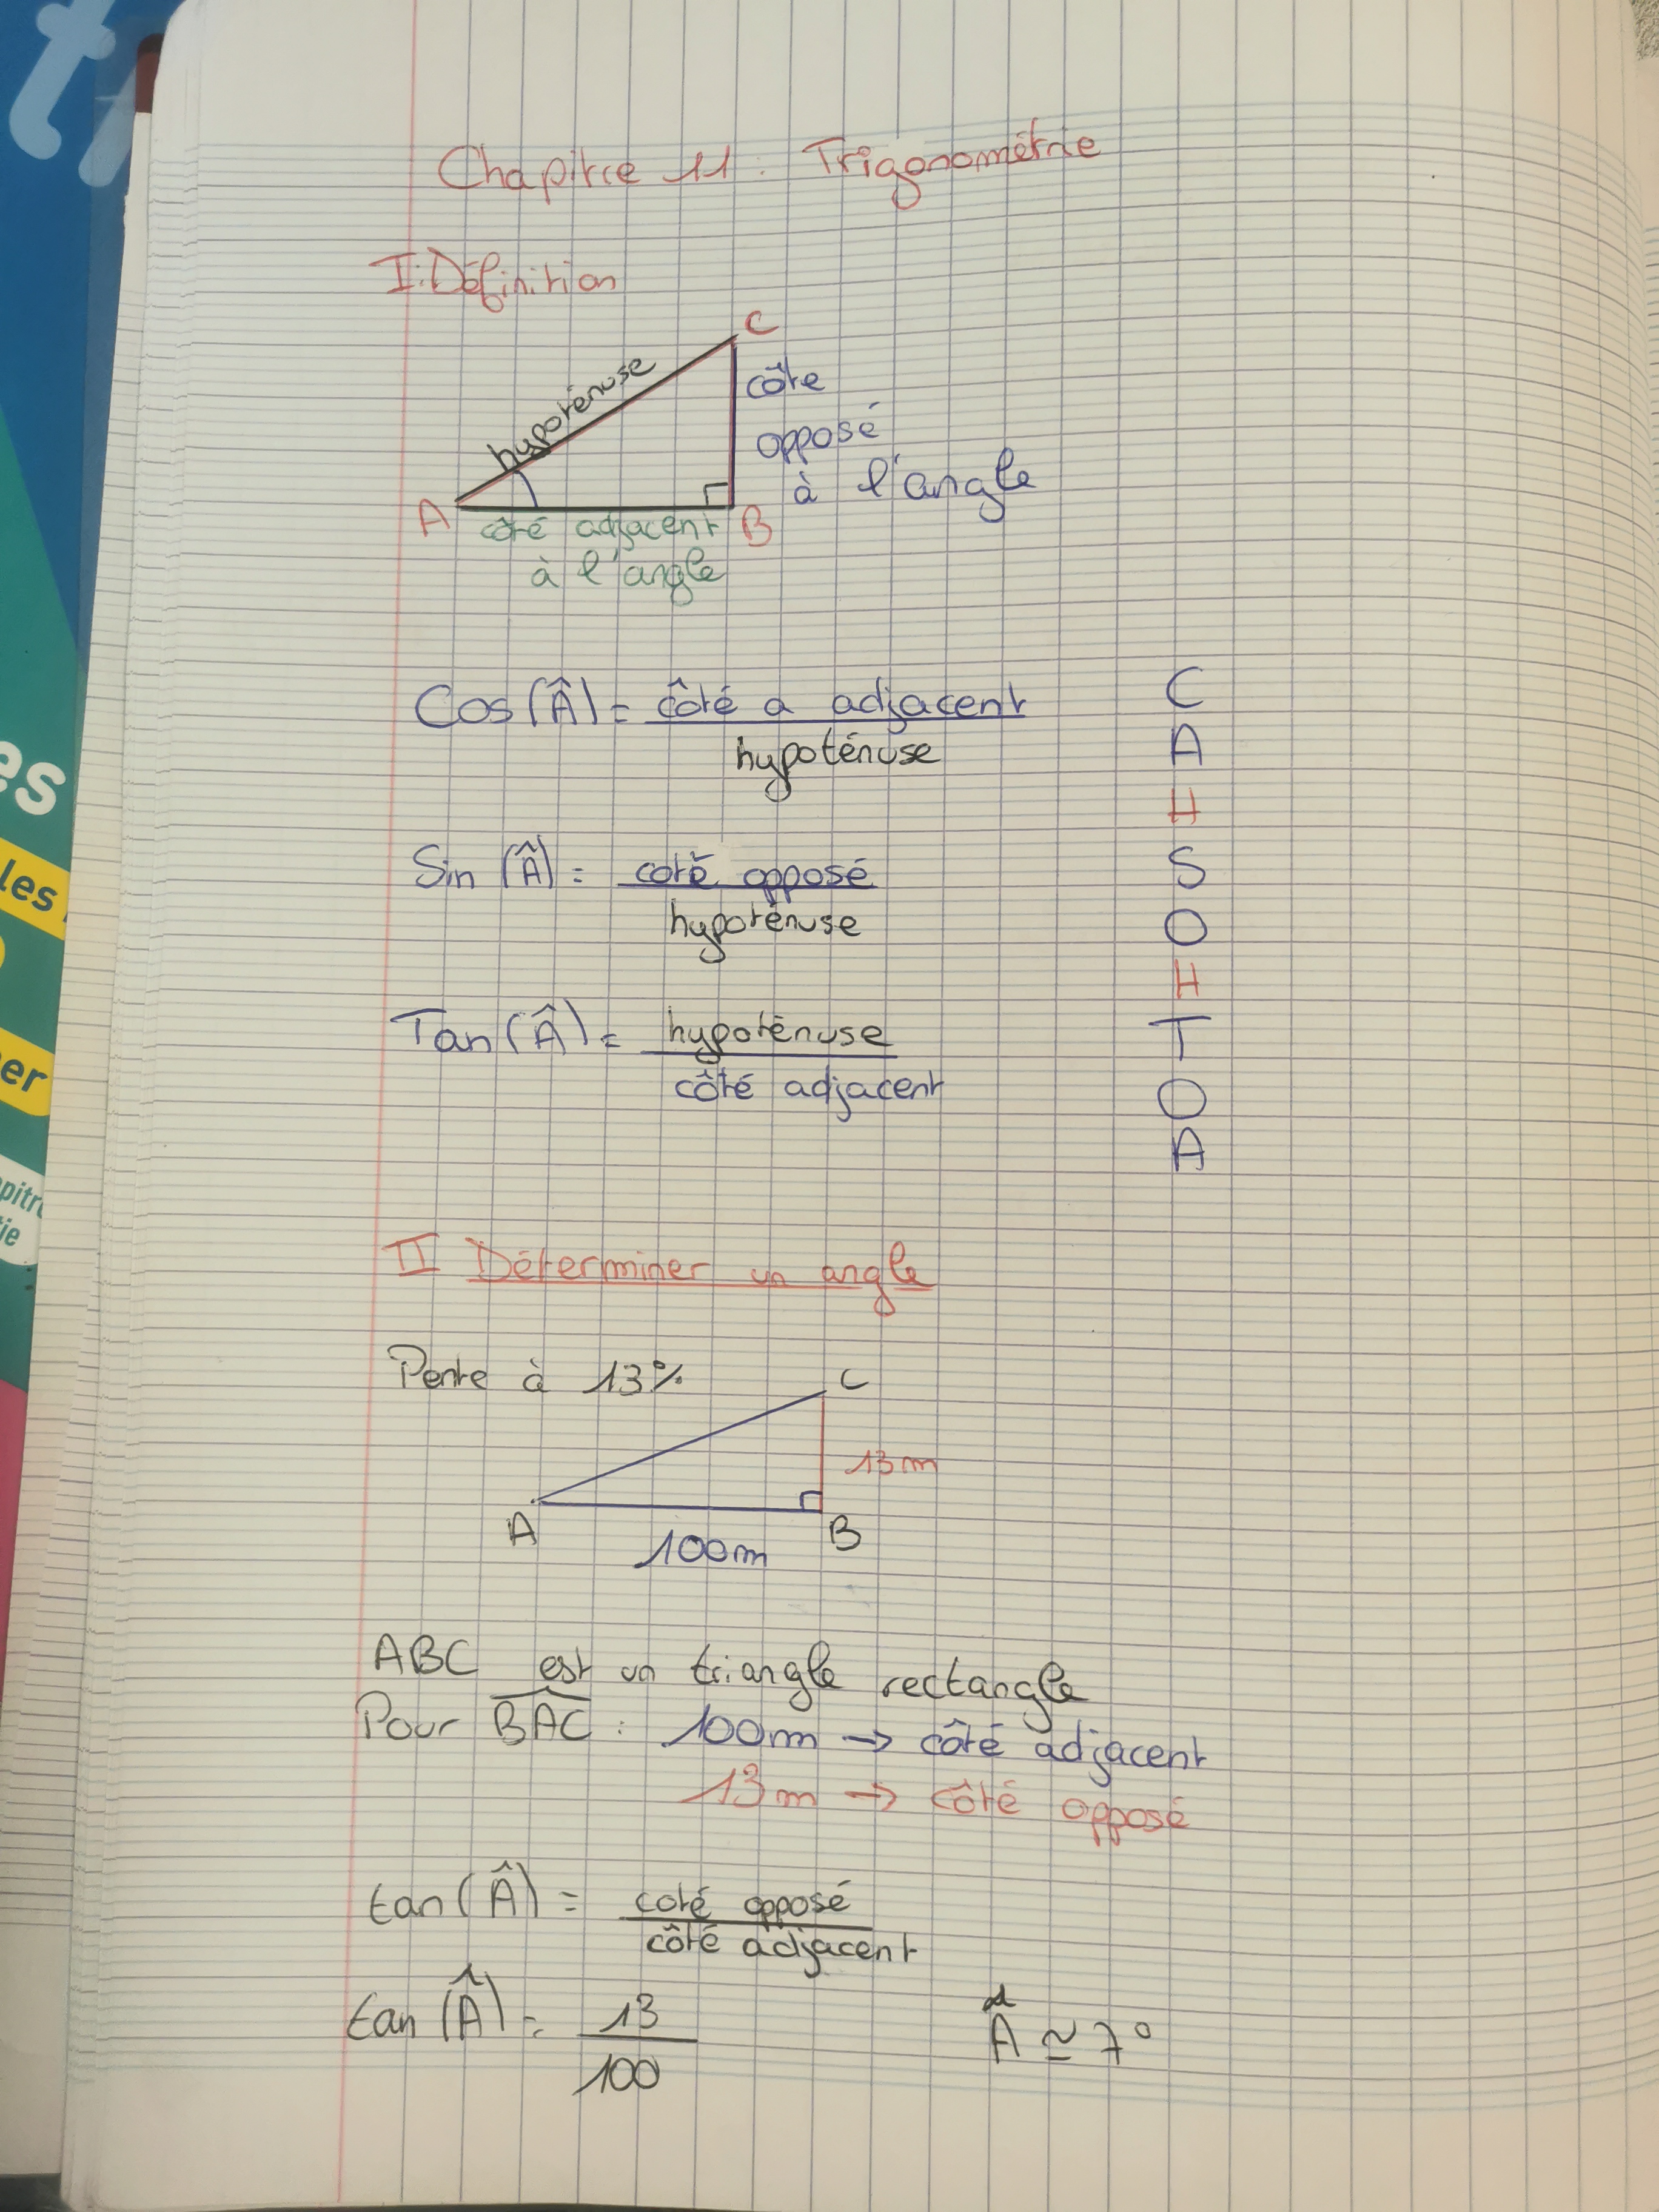 Chapitre 11 : Trigonométrie
I : Définition
C
hypoténuse
côte
opposé
à l'angle
A
B
côté adjacent
à l'angle
Cos(Â) = côté a adjacent
hypoténuse
Sin (Â) = coté opposé
hypoténuse
Tan(Â) = hypoténuse
côté adjacent
C
A
H
S
O
H
T
O
A
II Déterminer un angle
Pente à 13%
C
13m
A
B
100m
ABC est un triangle rectangle
Pour BAC : 100m → côté adjacent
13m → côté opposé
tan(Â) = coté opposé
côté adjacent
tan(Â) = 13
100
 ≃ 7°
es
les
er
pitr
ie